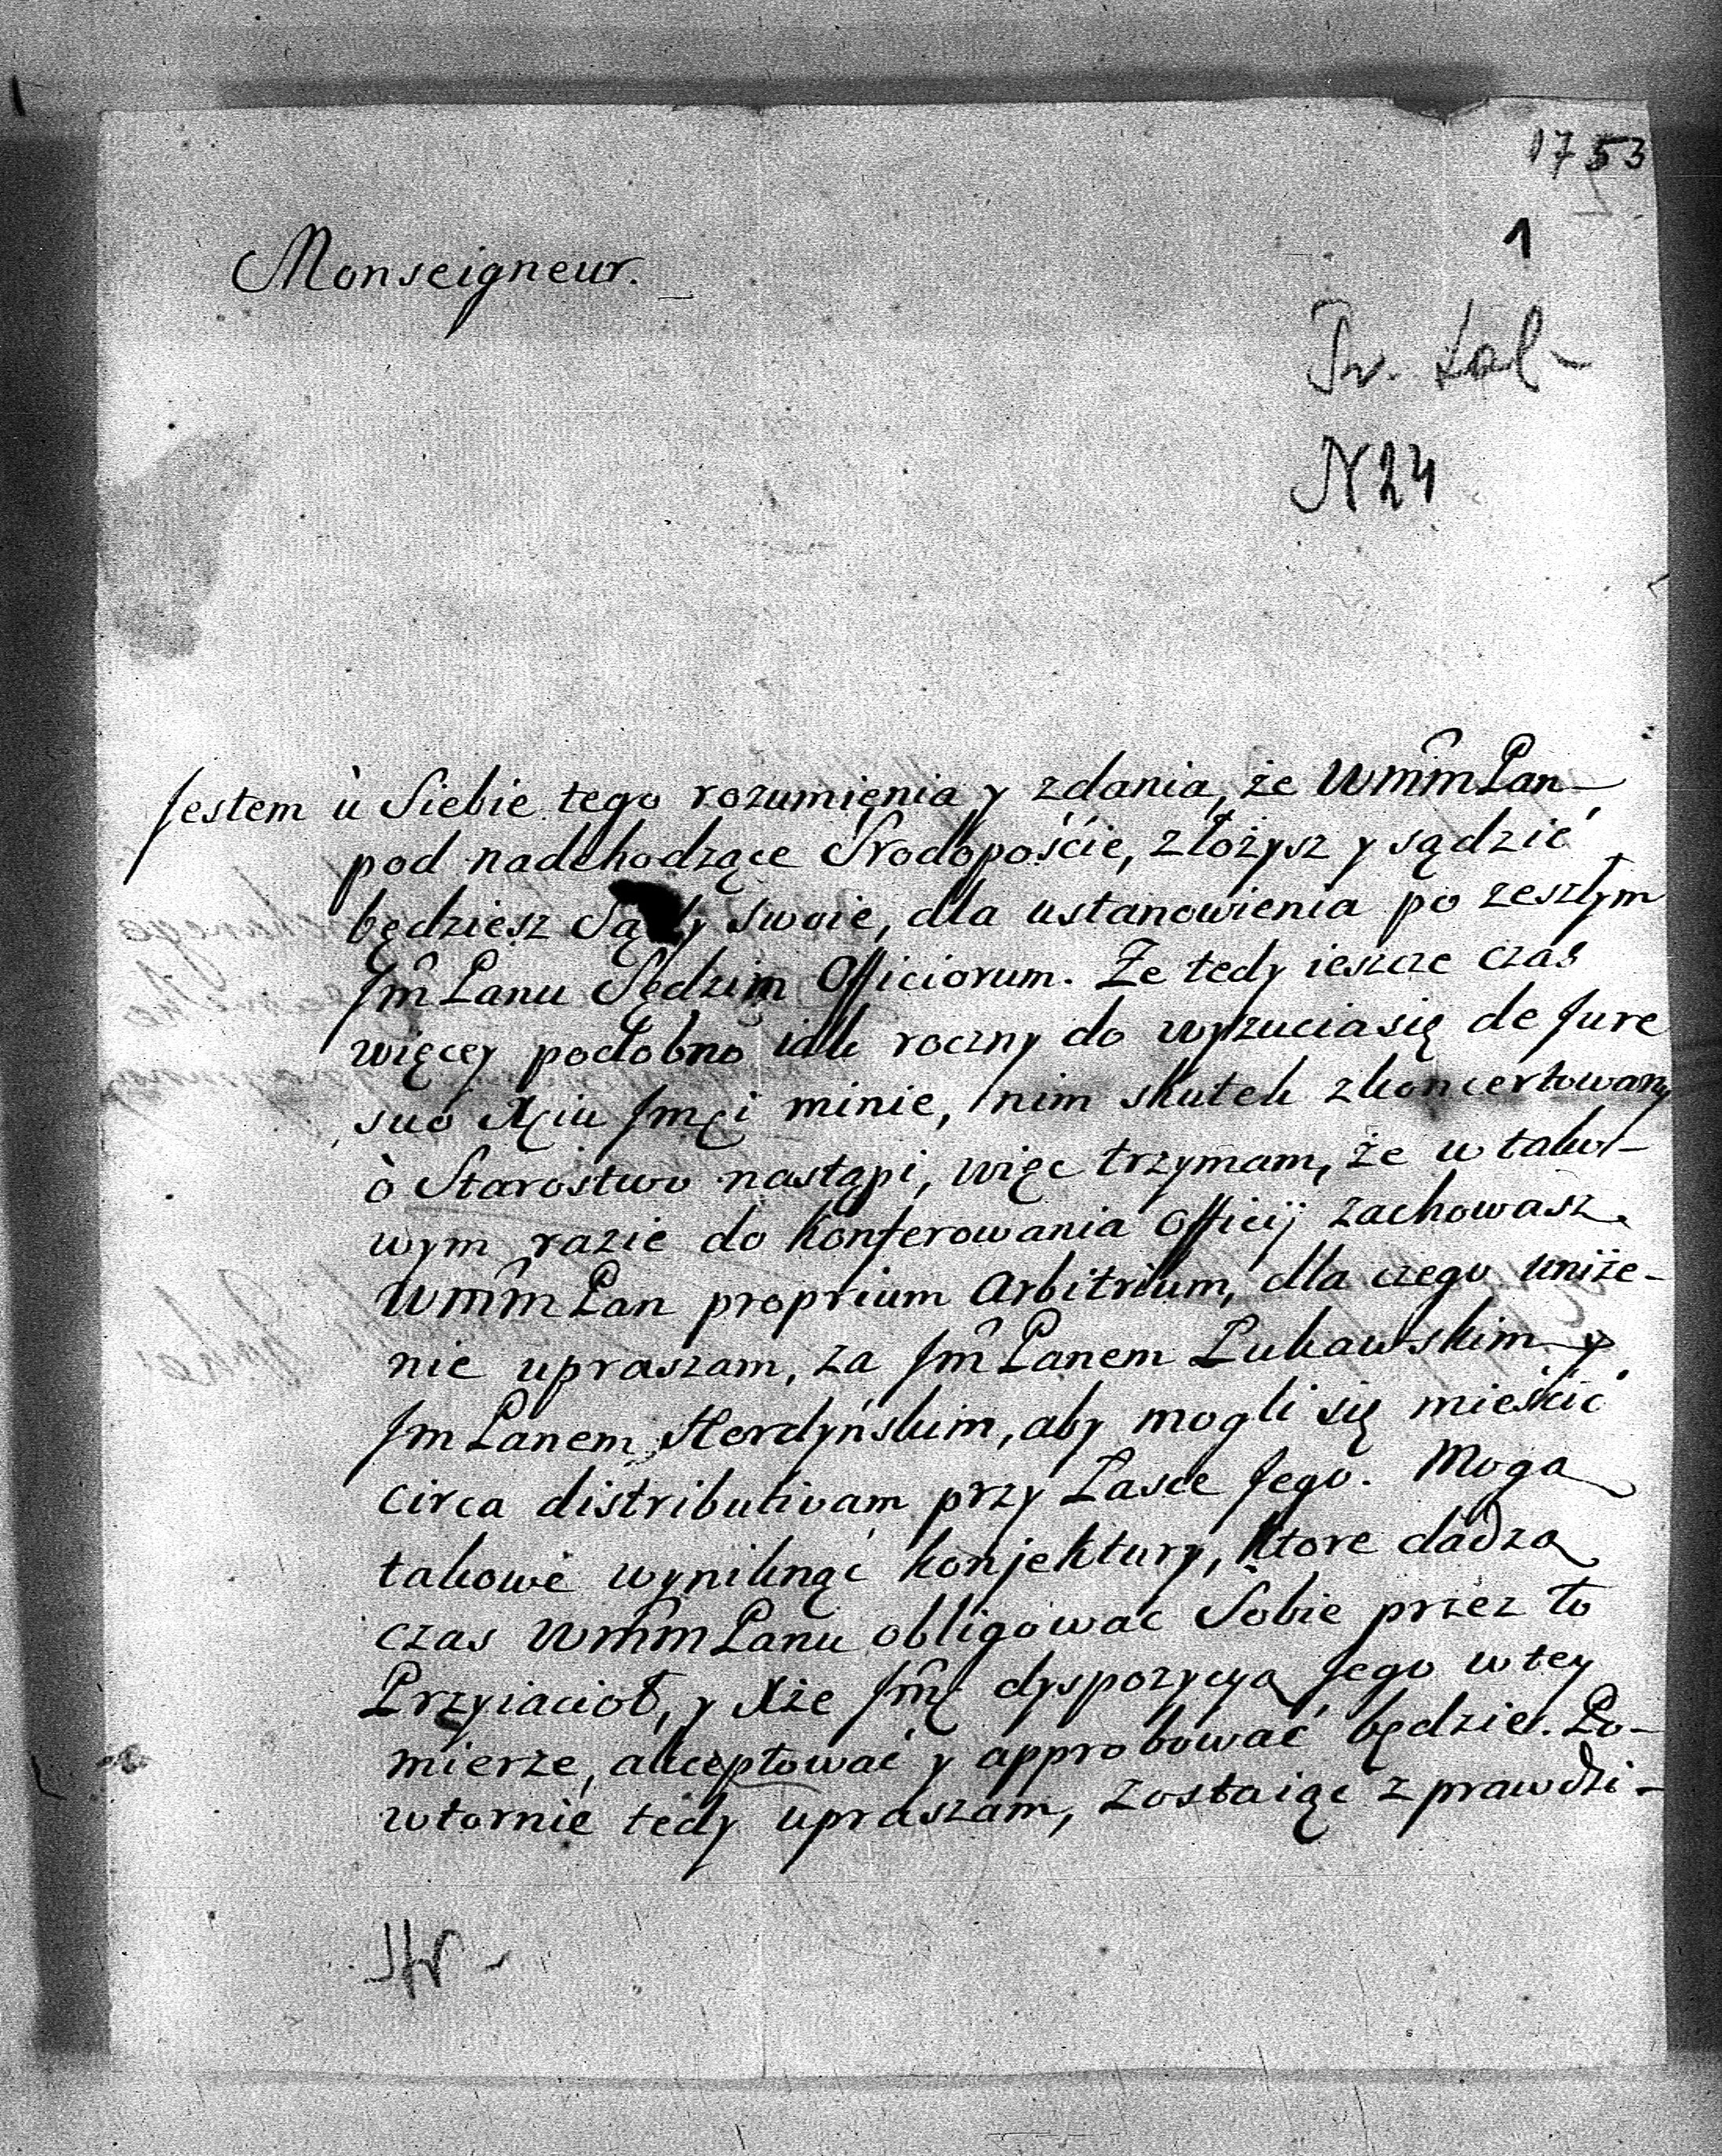 1753
1
Monseigneur.
N 24
Jestem ù Siebie tego rozumięnia y zdania, że WmmPan
pod nadchodzące Srodopoście, złożysz y sądzić
będziesz Sądy swoie, dla ustanowienia po zeszłym
Jm Panu Sędzim Officiorum. Ze tedy ieszcze czas
więcey podobno iak roczny do wyzuciasię de Jure
suo Xciu Jmci minie, nim skutek zkoncertowany
ò Starostwo nastąpi, więc trzymam, że w tako-
wym razie do konferowania Officij zachowasz
WmmPan proprium Arbitrium, dla czego uniże-
nie upraszam, za Jm Panem Lukawskim y
Jm Panem Herdyńskim, aby mogli się mieścić
circa distributivam przy Łasce Jego. Mogą
takowe wyniknąć konjektury, ktore dadzą
czas WmmPanu obligować Sobie przez to
Przyiacioł, y Xże Jmć dyspozycyą Jego w tey
mierze, akceptować y approbować będzie. Po-
wtornie tedy upraszam, zostaiąc z prawdzi-